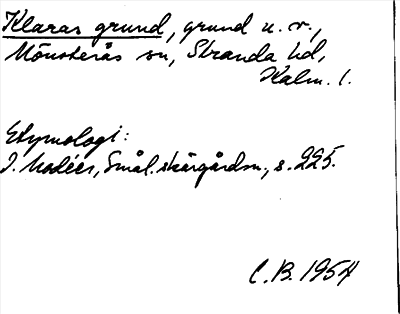 Klaras grund, grund u. v.,
Mönsterås sn, Stranda hd,
Kalm. l.
Etymologi:
I. Modéer, Smål. skärgårdsn., s. 225.
C.B. 1954